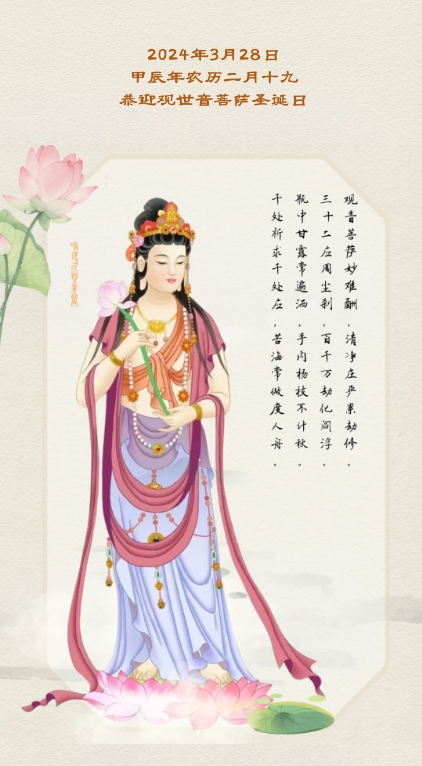 2024年3月28日
甲辰年农历二月十九
恭迎观世音菩萨圣诞日
观音菩萨妙难酬，清净庄严累劫修。
三十二应周尘刹，百千万劫化阎浮。
瓶中甘露常遍洒，手内杨枝不计秋。
千处祈求千处应，苦海常做度人舟。